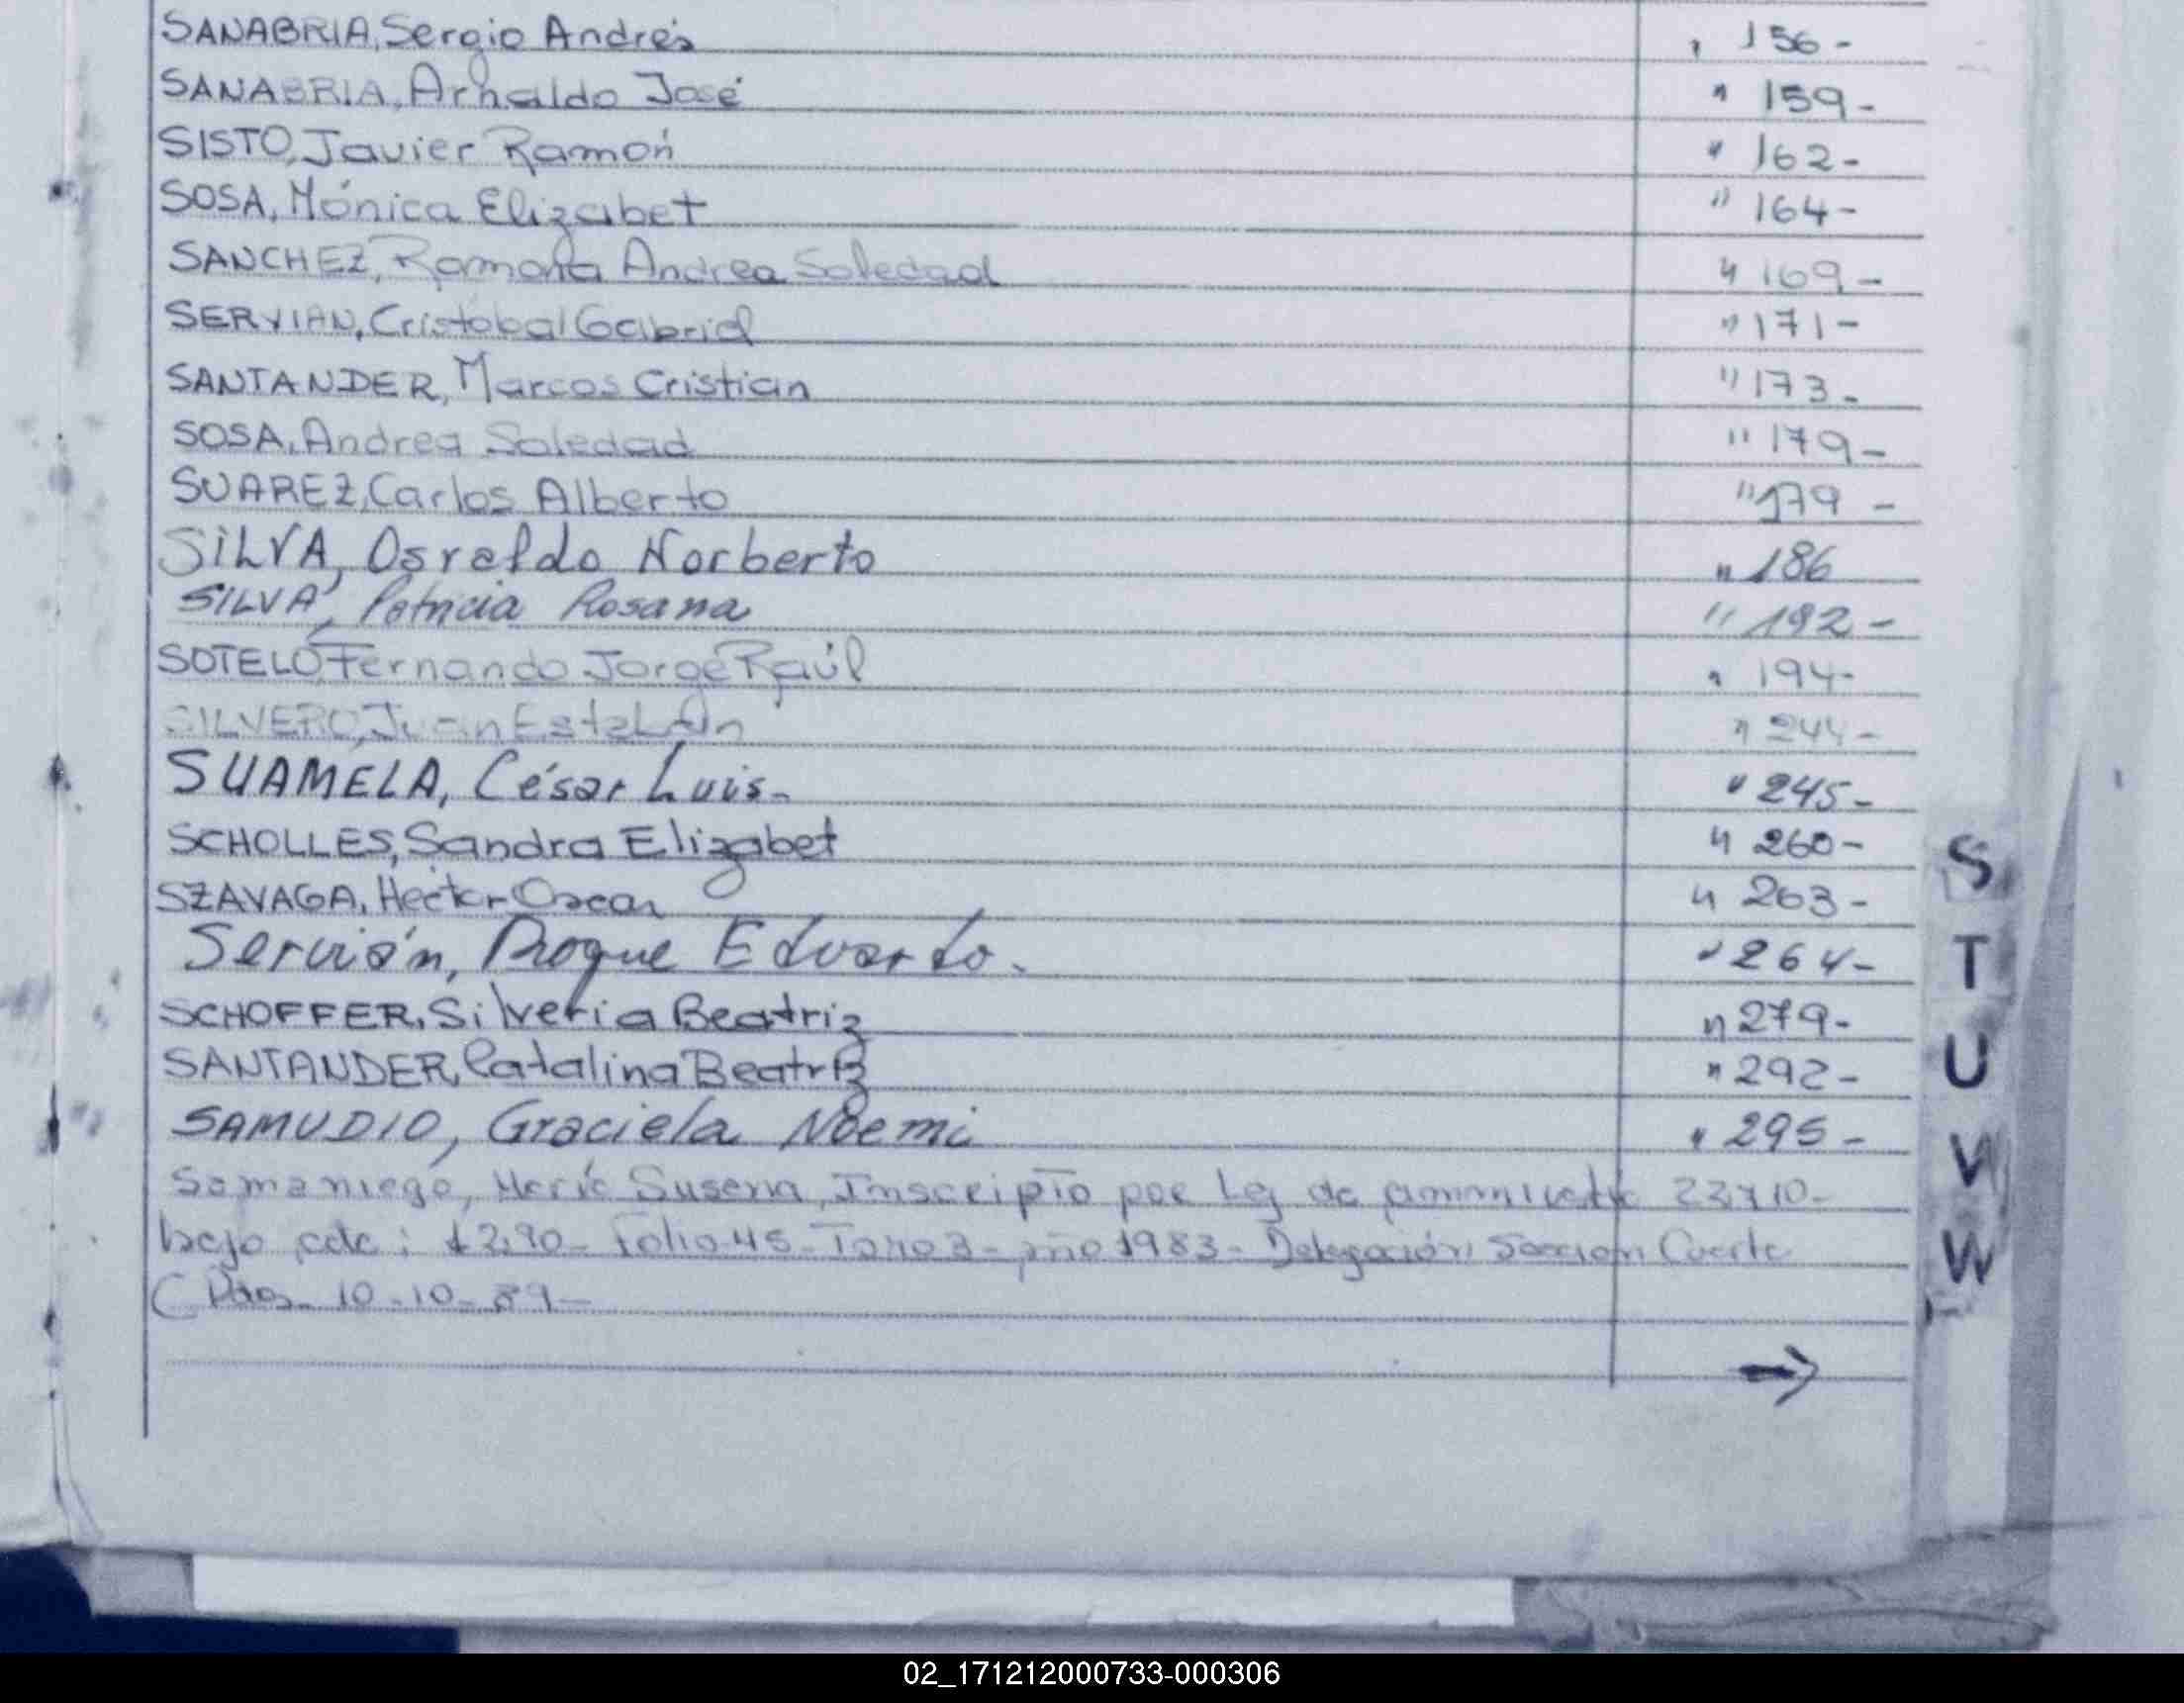 SANABRIA, Sergio Andrés " 156-
SANABRIA, Arnaldo José " 159-
SISTO, Javier Ramón " 162-
SOSA, Mónica Elizabet " 164-
SANCHEZ, Ramona Andrea Soledad " 169-
SERVIAN, Cristobal Gabriel " 171-
SANTANDER, Marcos Cristian " 173-
SOSA, Andrea Soledad " 179-
SUAREZ, Carlos Alberto " 179-
SILVA, Osvaldo Norberto " 186
SILVA, Patricia Rosana " 192-
SOTELO, Fernando Jorge Raúl " 194-
SILVERO, Juan " 244-
SUAMELA, César Luis- " 245-
SCHOLLES, Sandra Elizabet " 260-
SZAVAGA, Hector Oscar " 263-
Servián, Roque Eduardo. " 264-
SCHOFFER, Silveria Beatriz " 279-
SANTANDER, Catalina Beatriz " 292-
SAMUDIO, Graciela Noemi " 295-
Samaniego, María Susana, Inscripto por Ley de
bajo Folio 45- Tomo 3- año 1983- Delegación Sección Cuarta
10-10-89-
→
S
T
U
V
W
02_171212000733-000306